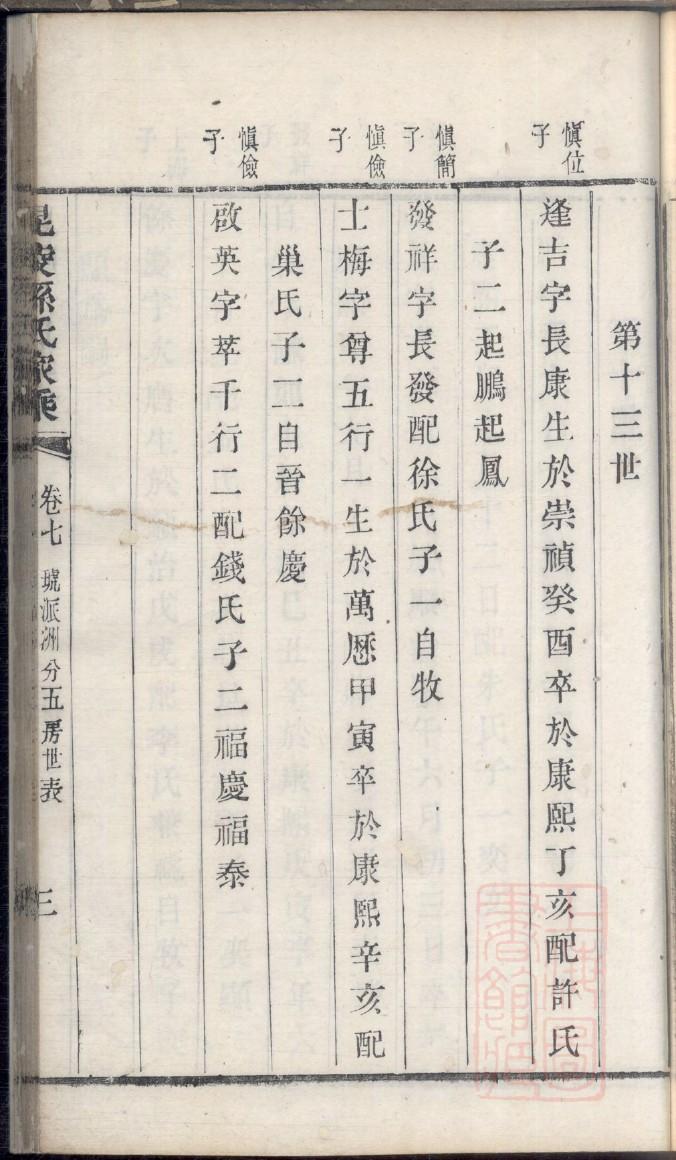 第十三世
愼位子
逢吉字長康生於崇禎癸酉卒於康熙丁亥配許氏
子二起鵬起鳳
愼簡子
發祥字長發配徐氏子一自牧
愼儉子
士梅字尊五行一生於萬歷甲寅卒於康熙辛亥配
巢氏子二自晉餘慶
愼儉子
啟英字萃千行二配錢氏子二福慶福泰
毘陵孫氏家乘
卷七
琥派洲分五房世表
三
上海圖書館藏